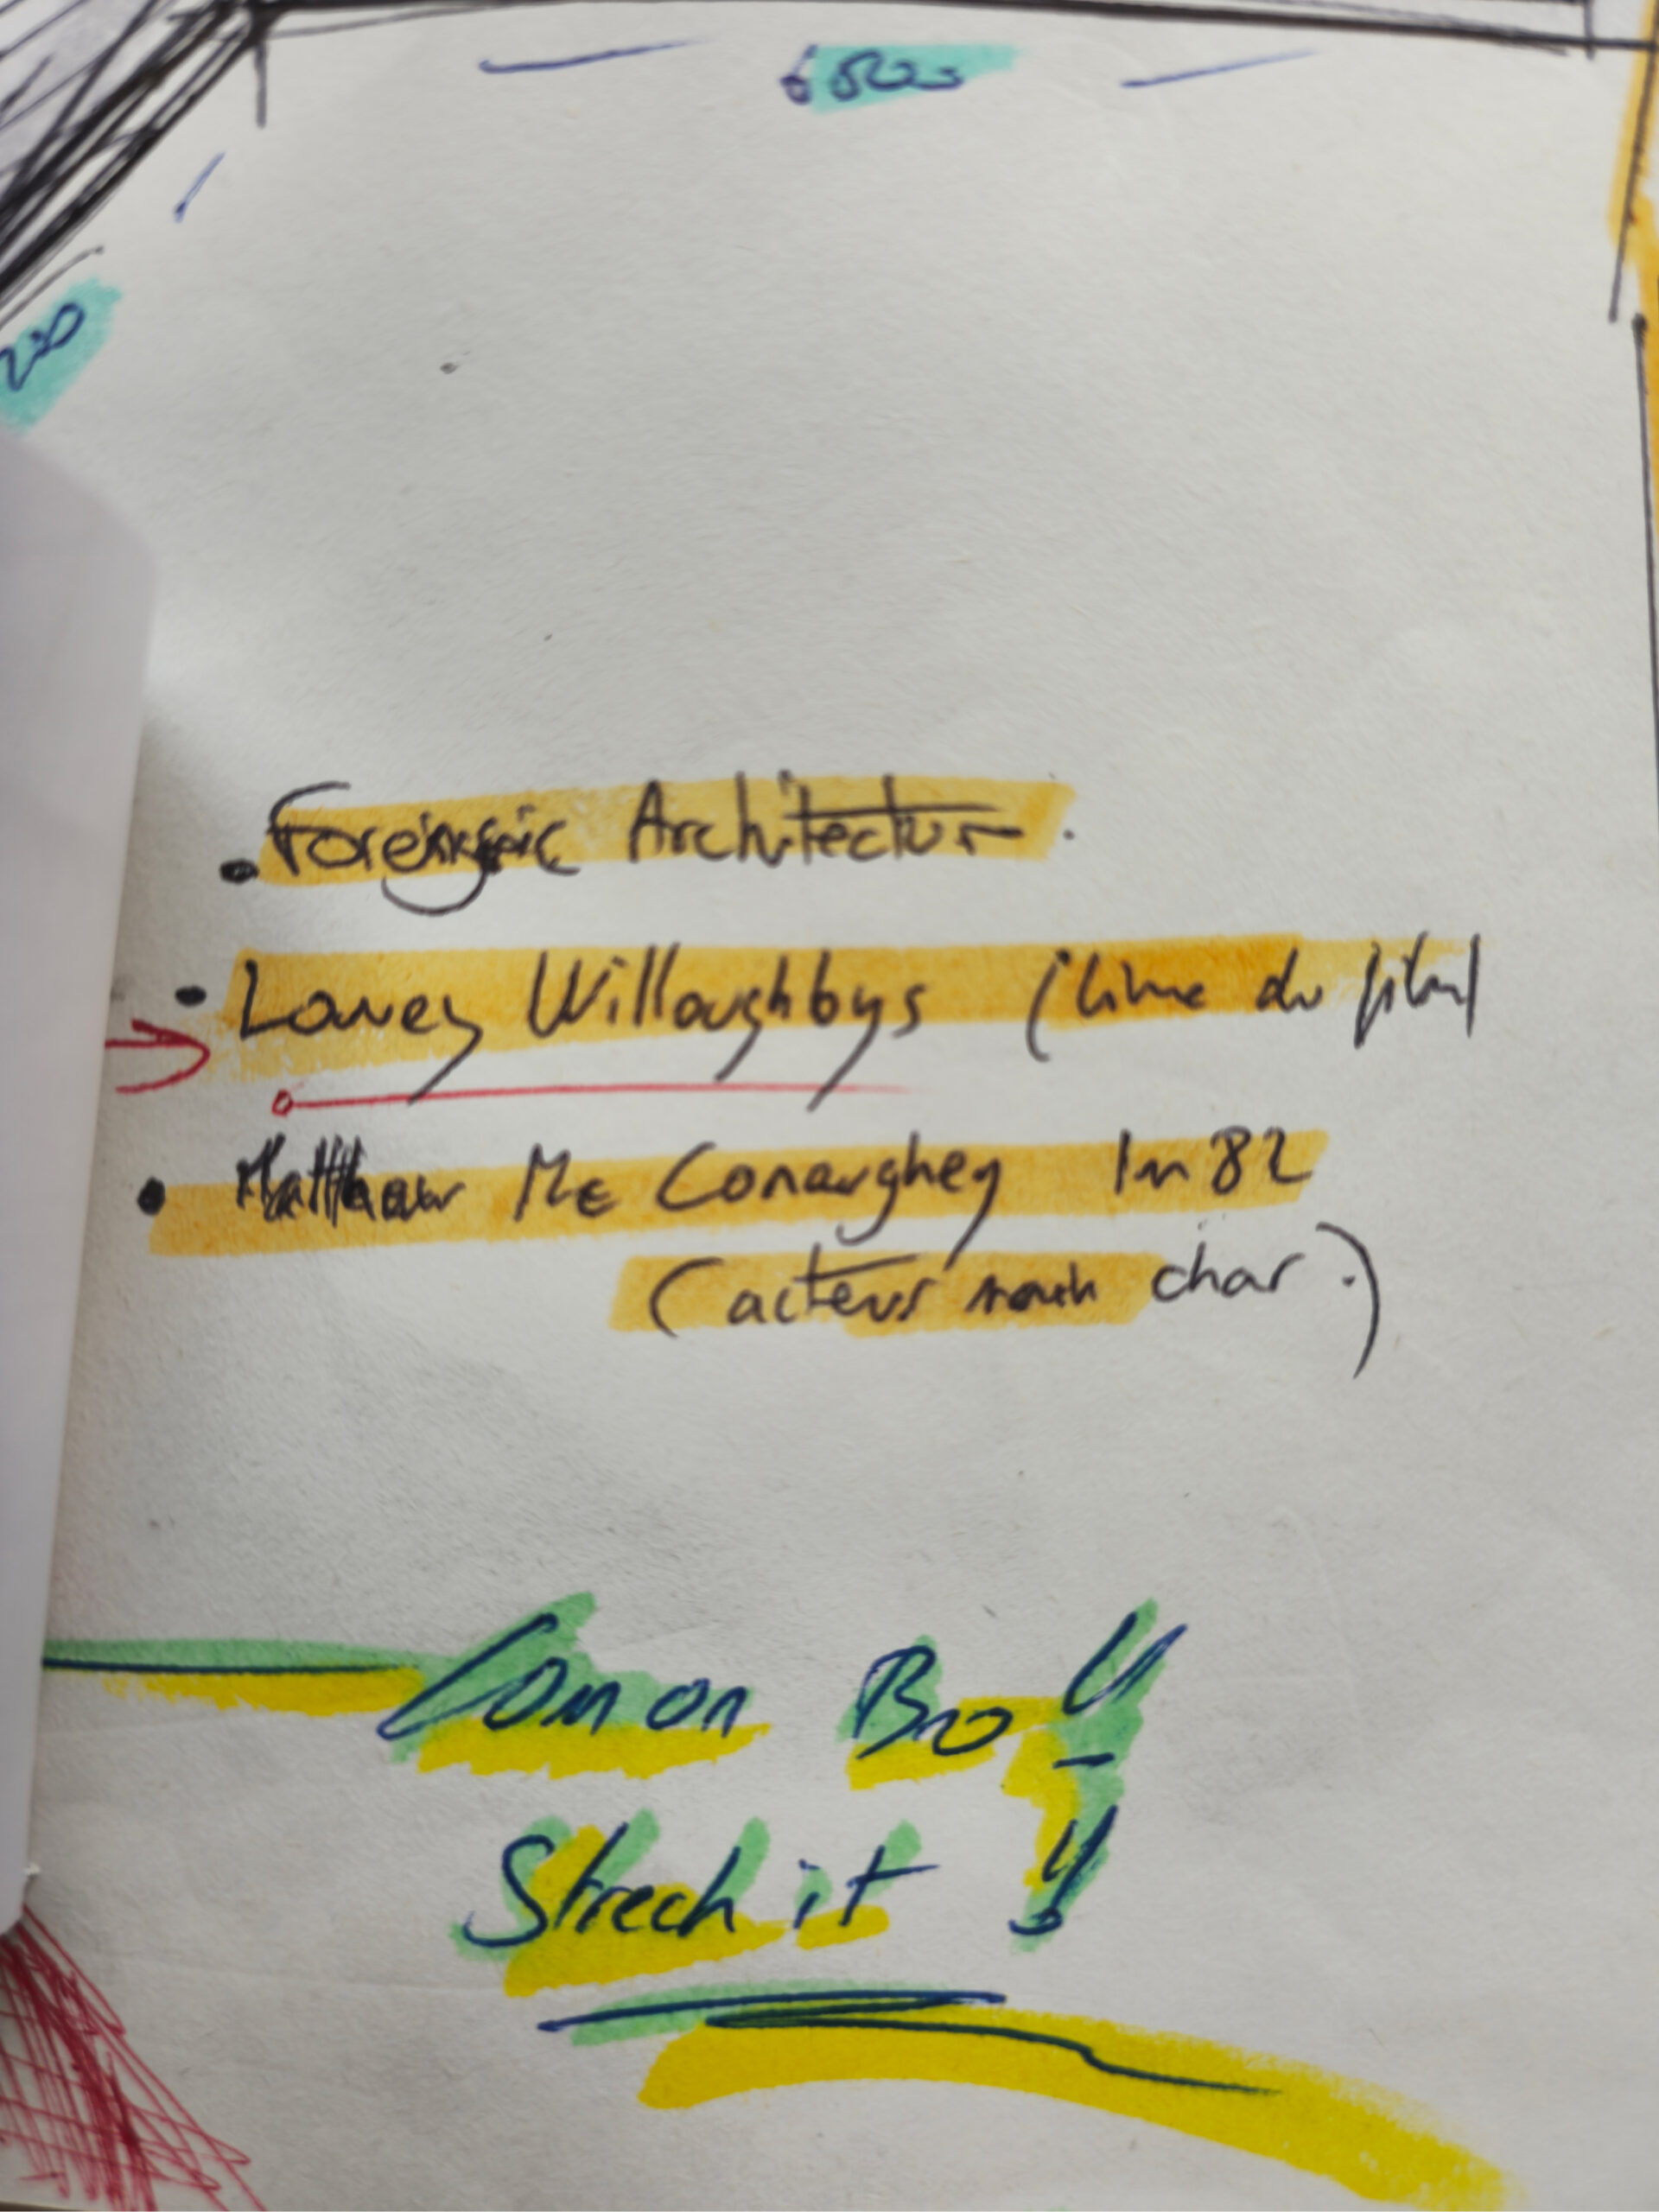 6500
• Forensic Architectur.
• Lowey Willoughbys (lime du film)
• Matthew Mc Conaughey 1m82
(acteur char.)
Com on Bro !
Strech it !